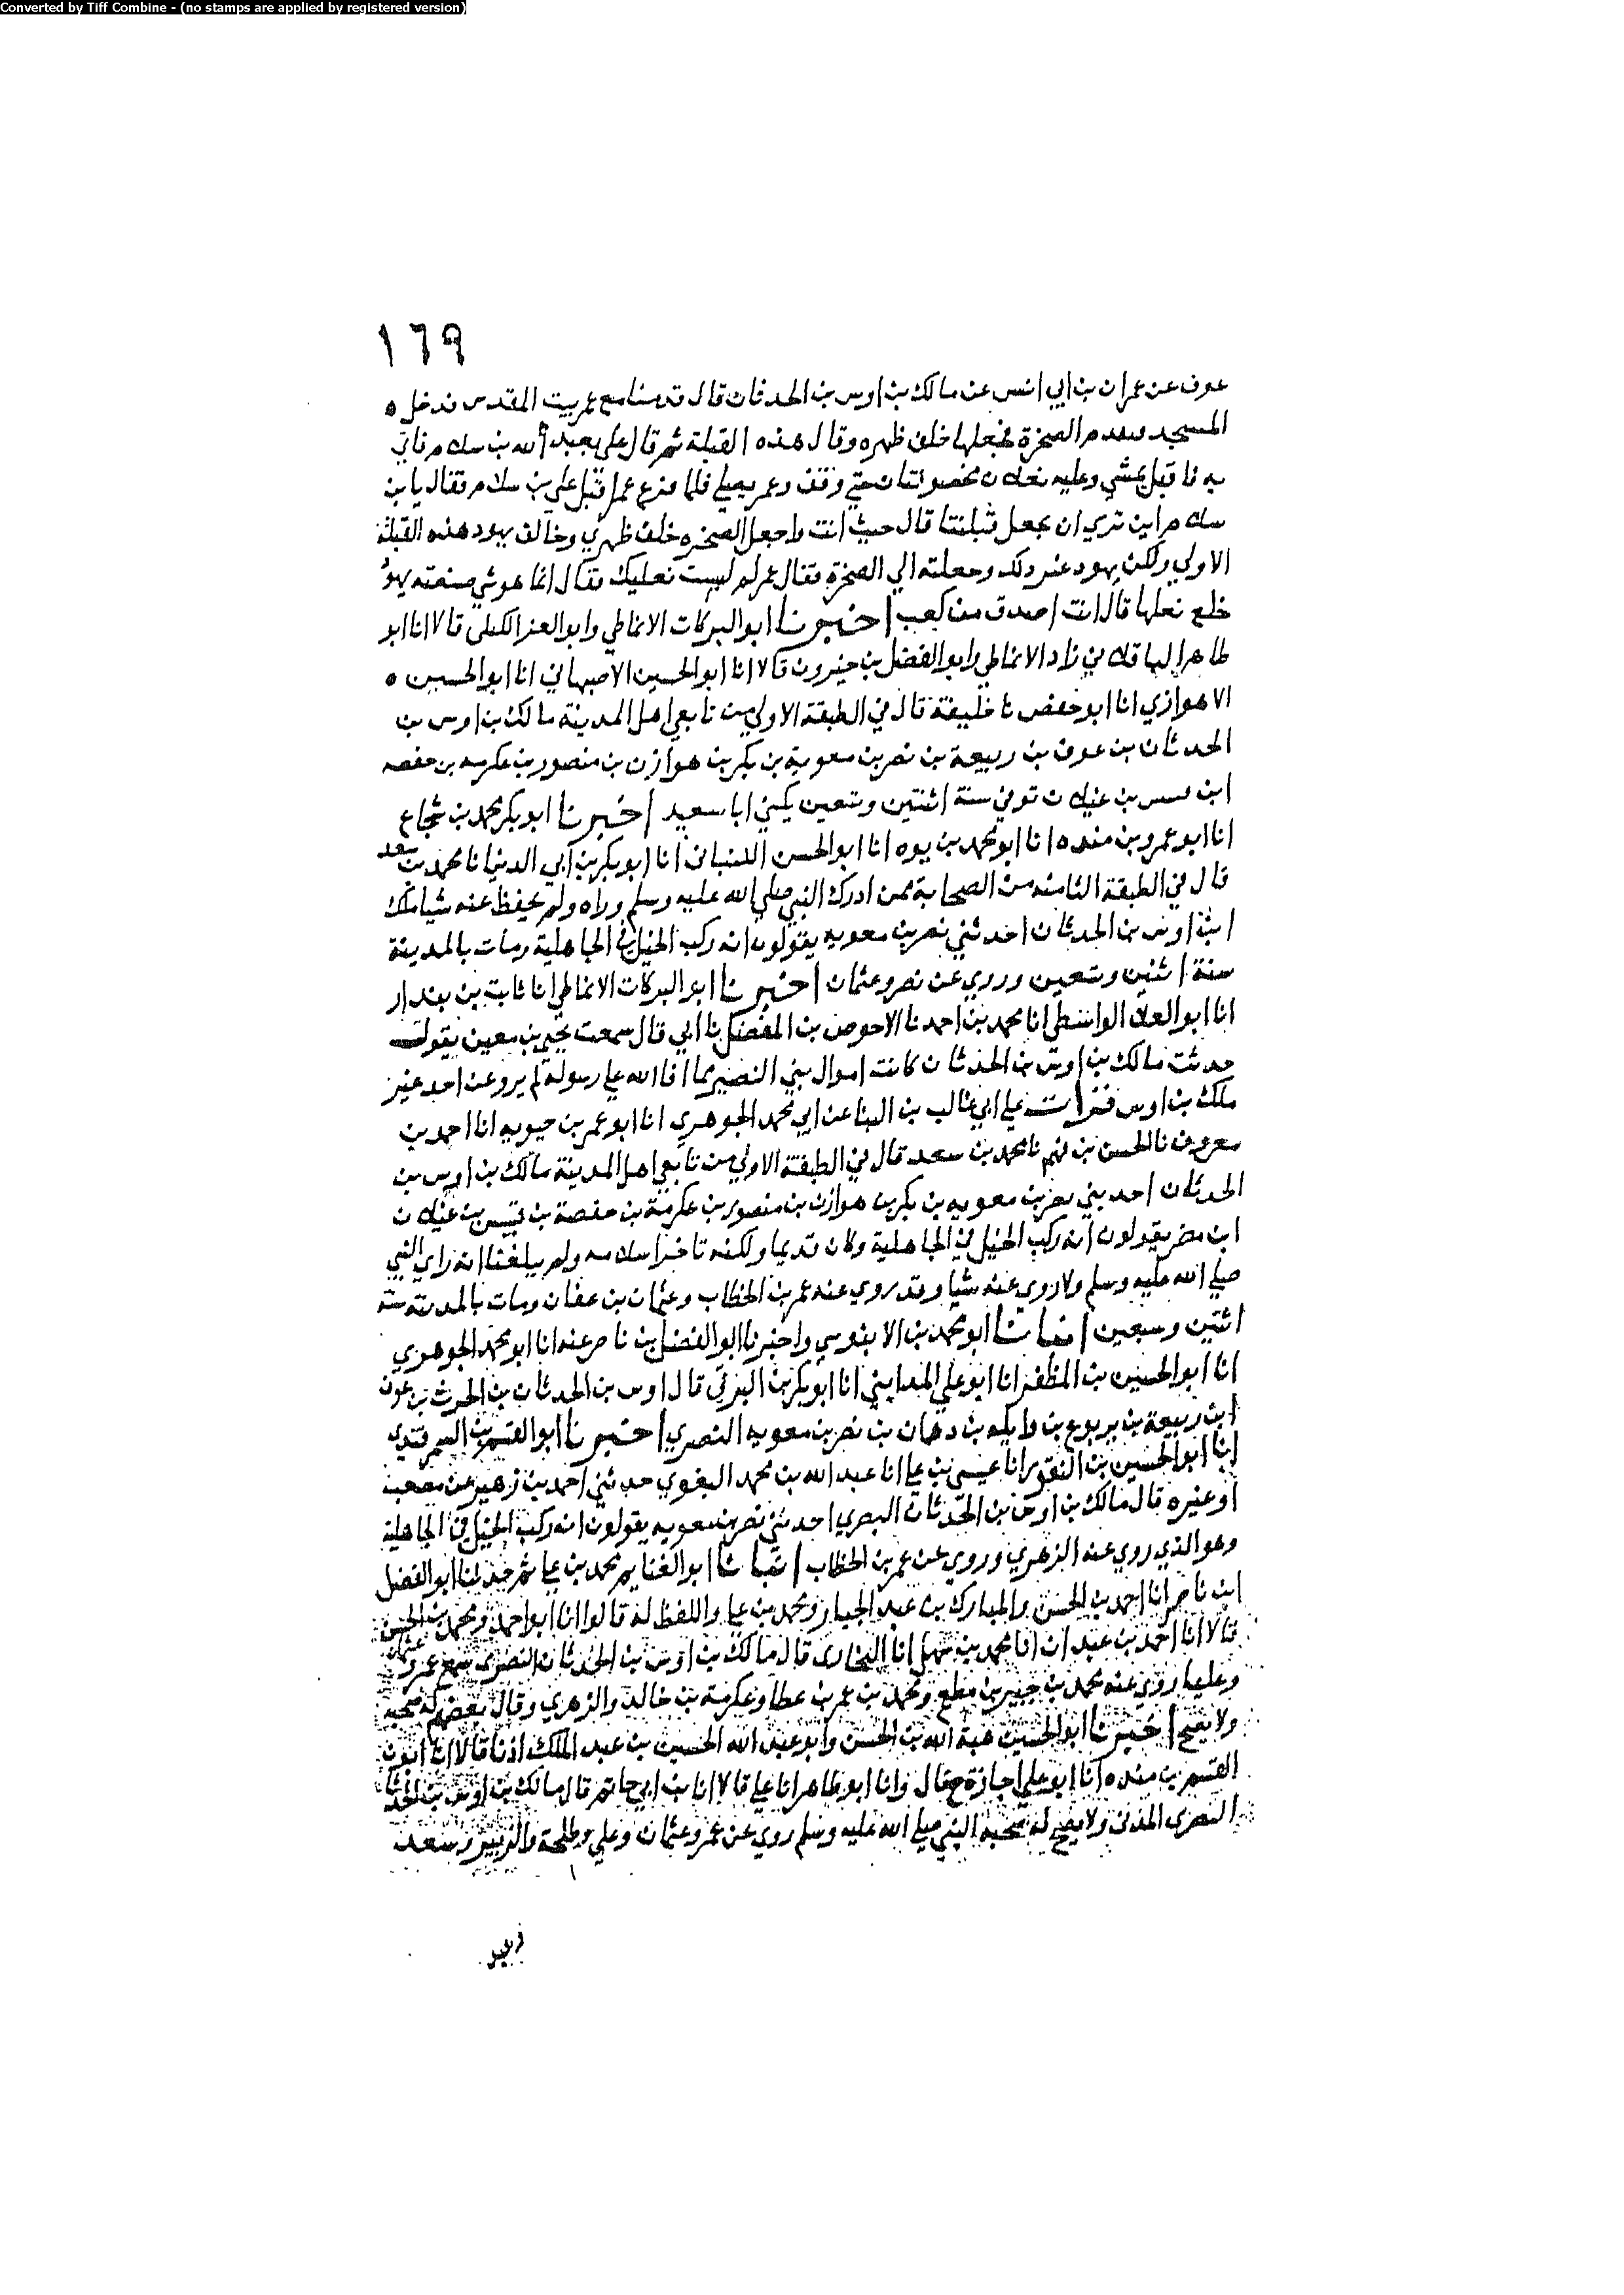 Converted by Tiff Combine - (no stamps are applied by registered version)
١٦٩
عوف عن عمران بن ابي انس عن مالك بن اوس بن الحدثان قال قدمنا مع عمر بيت المقدس فدخل ه
المسجد الصخرة فجعلها خلف ظهره وقال هذه القبلة ثم قال علي بعبد الله بن سلام فاتي
به فاقبل يمشي وعليه نعلان مخصوفتان حتي وقف وعمر يصلي فلما فرع عمر اقبل علي بن سلام فقال يا بن
سلام اين تري ان نجعل قبلتنا قال حيث انت واجعل الصخره خلف ظهري وخالف يهود هذه القبلة
الاولي ولكن يهود ذلك وجعلته الي الصخرة فقال عمر لم لبست نعليك فقال انما هو شي صنعته يهود
خلع نعلها قال انت اصدق من كعب اخبرنا ابو البركات الانماطي وابو العز الكيلي قالا انا ابو
طاهر الباقلاني زاد الانماطي وابو الفضل بن خيرون قالا انا ابو الحسين الاصبهاني انا ابو الحسين ه
الاهوازي انا ابو حفص نا خليفة قال في الطبقة الاولي من تابعي اهل المدينة مالك بن اوس بن
الحدثان بن عوف بن ربيعة بن نصر بن معوية بن بكر بن هوازن بن منصور بن عكرمه بن حفصه
ابن عيلان توفي سنة اثنتين وتسعين يكني ابا سعيد اخبرنا ابو بكر محمد بن شجاع
انا ابو عمرو بن منده انا ابو محمد بن يوه انا ابو الحسن اللنباني انا ابو بكر بن ابي الدنيا نا محمد بن سعد
قال في الطبقة الثامنه من الصحابة ممن ادرك النبي صلي الله عليه وسلم وراه ولم يحفظ عنه شيا ملك
ابن اوس بن الحدثان احد بني نصر بن معويه يقولون انه ركب الخيل في الجاهلية ومات بالمدينة
سنة اثنين وتسعين وروي عن نصر وعثمان اخبرنا ابو البركات الانماطي انا ثابت بن بندار
انا ابو العلا الواسطي انا محمد بن احمد نا الاحوص بن المفضل نا ابي قال سمعت يحيي بن معين يقول
حديث مالك بن اوس بن الحدثان كانت اموال بني النضير مما افا الله علي رسوله لم يرو عن احد غير
ملك بن اوس قرات علي ابي غالب بن البنا عن ابي محمد الجوهري انا ابو عمر بن حيويه انا احمد بن
معروف نا الحسن بن فهم نا محمد بن سعد قال في الطبقة الاولي من تابعي اهل المدينة مالك بن اوس بن
الحدثان احد بني نصر بن معويه بن بكر بن هوازن بن منصور بن عكرمة بن حفصة بن قيس بن عيلان
ابن مضر يقولون انه ركب الخيل في الجاهلية وكان قديما ولكنه تاخر اسلامه ولم يبلغنا انه راي النبي
صلي الله عليه وسلم ولا روي عنه شيا وقد روي عنه عمر بن الخطاب وعثمان بن عفان ومات بالمدينة سنة
اثنين وسبعين انبانا ابو محمد بن الابنوسي واخبرنا ابو الفضل بن ناصر عنه انا ابو محمد الجوهري
انا ابو الحسين بن المظفر انا ابو علي المدايني انا ابو بكر بن البرقي قال اوس بن الحدثان بن الحرث بن عوف
ابن ربيعة بن يربوع بن وايله بن دهمان بن نصر بن معويه النصري اخبرنا ابو القسم بن السمرقندي
انا ابو الحسين بن النقور انا عيسي بن علي انا عبد الله بن محمد البغوي حدثني احمد بن زهير عن مصعب
او غيره قال مالك بن اوس بن الحدثان البصري احد بني نصر بن معويه يقولون انه ركب الخيل في الجاهلية
وهو الذي روي عنه الزهري وروي عن عمر بن الخطاب انبانا ابو الغنايم محمد بن علي ثم حدثنا ابو الفضل
ابن ناصر انا احمد بن الحسن والمبارك بن عبد الجبار ومحمد بن علي واللفظ له قالوا انا ابو احمد ومحمد بن الحسن
قالا انا احمد بن عبدان انا محمد بن سهل انا البخاري قال مالك بن اوس بن الحدثان النصري سمع عمر وعثمان
وعليا روي عنه محمد بن جبير بن مطعم ومحمد بن عمر بن عطا وعكرمة بن خالد والزهري وقال بعضهم له صحبه
ولا يصح اخبرنا ابو الحسين هبة الله بن الحسن وابو عبد الله الحسين بن عبد الملك اذنا قالا انا ابو
القسم بن منده انا ابو علي اجازة ح قال وانا ابو طاهر انا علي قالا انا بن ابي حاتم قال مالك بن اوس بن الحدثان
النصري المدني ولا يصح له صحبه النبي صلي الله عليه وسلم روي عن عمر وعثمان وعلي وطلحة والزبير وسعد